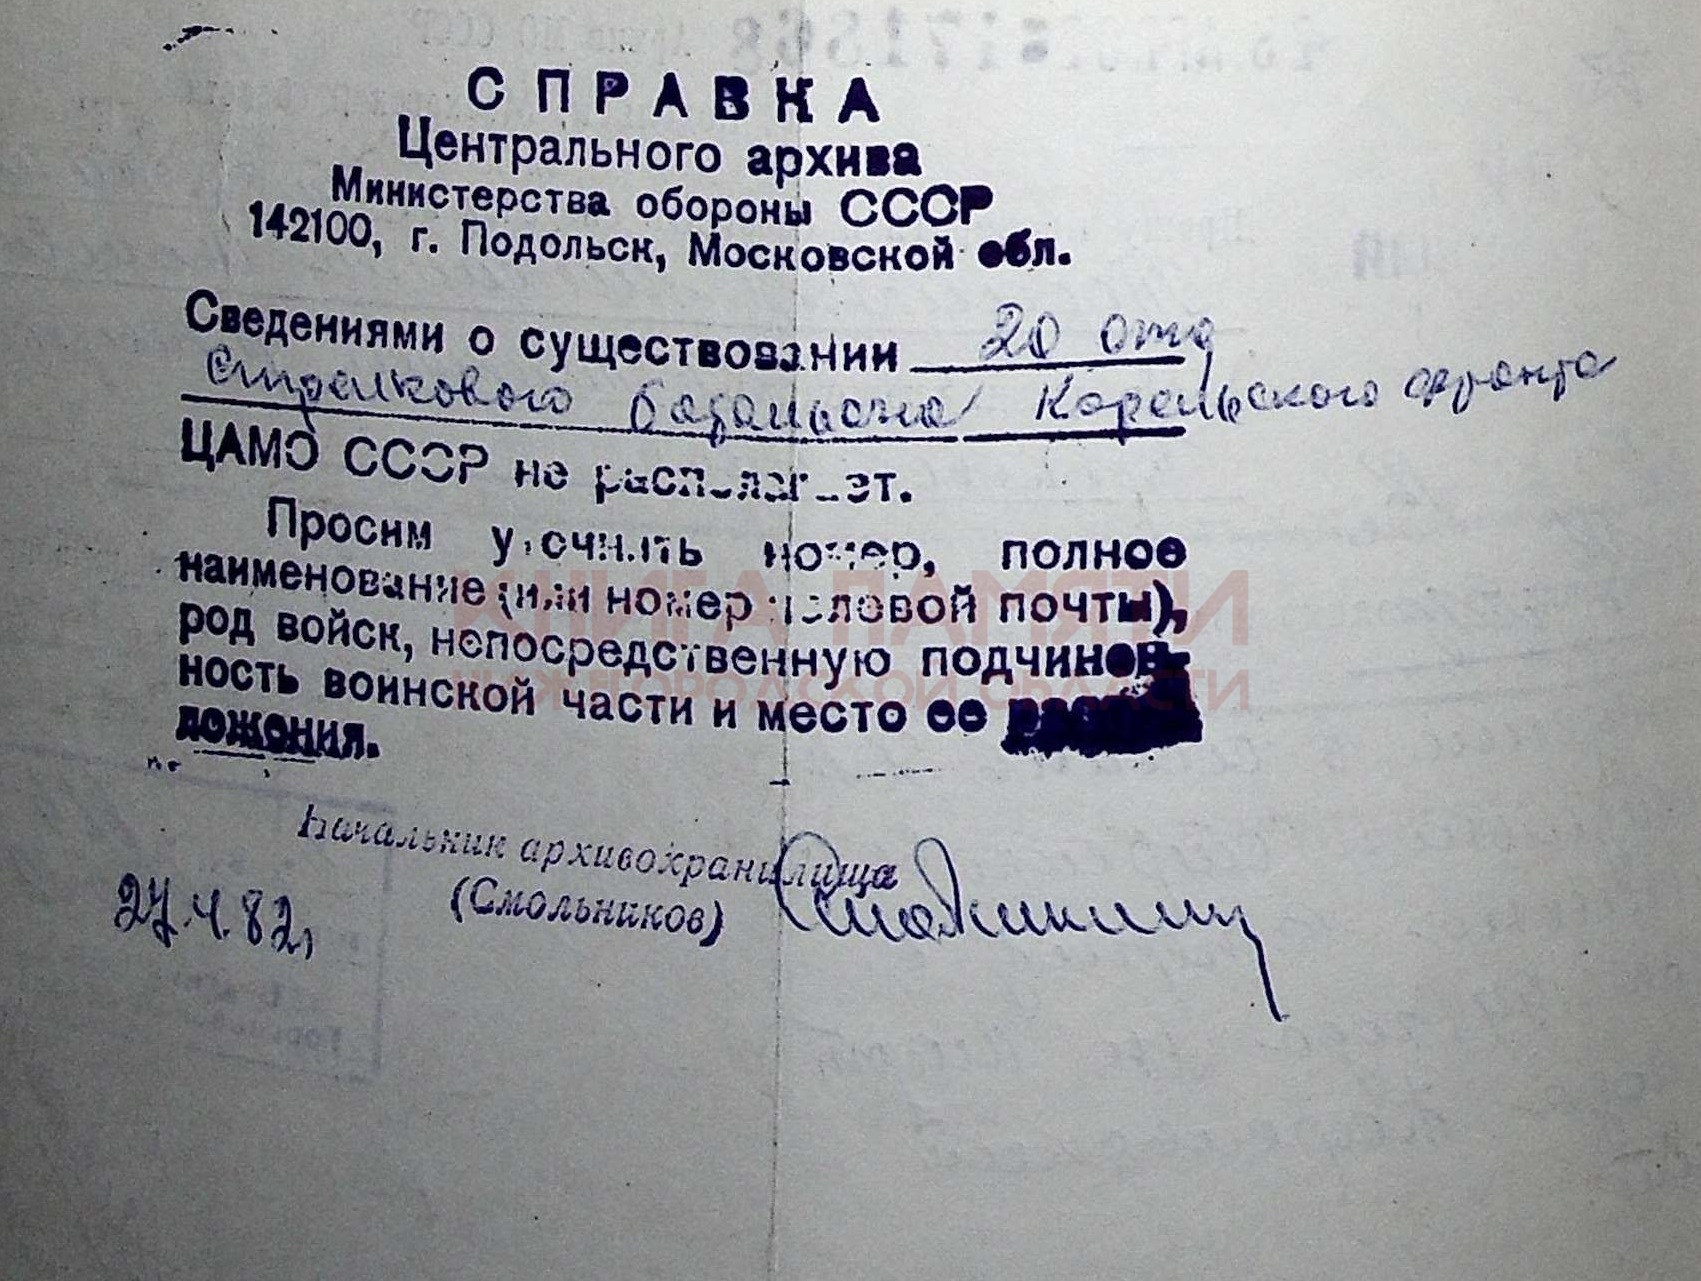 СПРАВКА
Центрального архива
Министерства обороны СССР
142100, г. Подольск, Московской обл.
Сведениями о существовании 20 отд
стрелкового батальона Карельского фронта
ЦАМО СССР не располагает.
Просим уточнить номер, полное
наименование (или номер полевой почты),
род войск, непосредственную подчинен-
ность воинской части и место ее распо-
ложения.
КНИГА ПАМЯТИ
НИЖЕГОРОДСКОЙ ОБЛАСТИ
Начальник архивохранилища
(Смольников)
27.4.82г